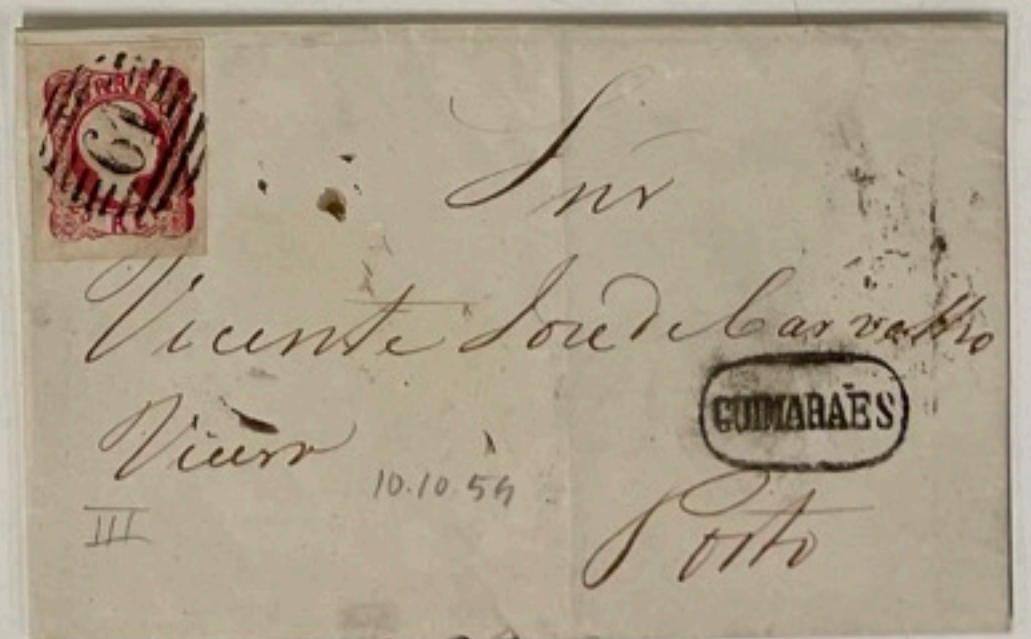 CORREIO
61
RE
Snr
Vicente José de Carvalho
GUIMARÃES
10.10.59
III
Porto